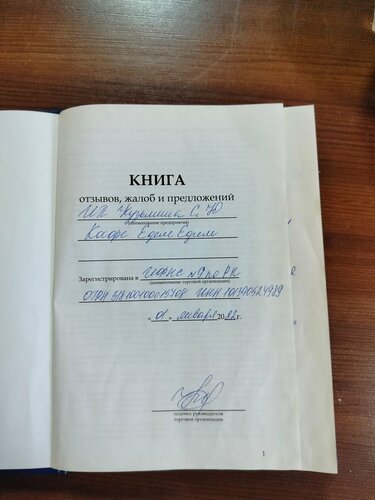 КНИГА
отзывов, жалоб и предложений
ИП Кузьмина С. Ю
(наименование предприятия)
Кафе Едем Едим
Зарегистрирована в
(наименование торговой организации)
ОГРН ИНН
"01" января 2022г.
подпись руководителя
торговой организации
1